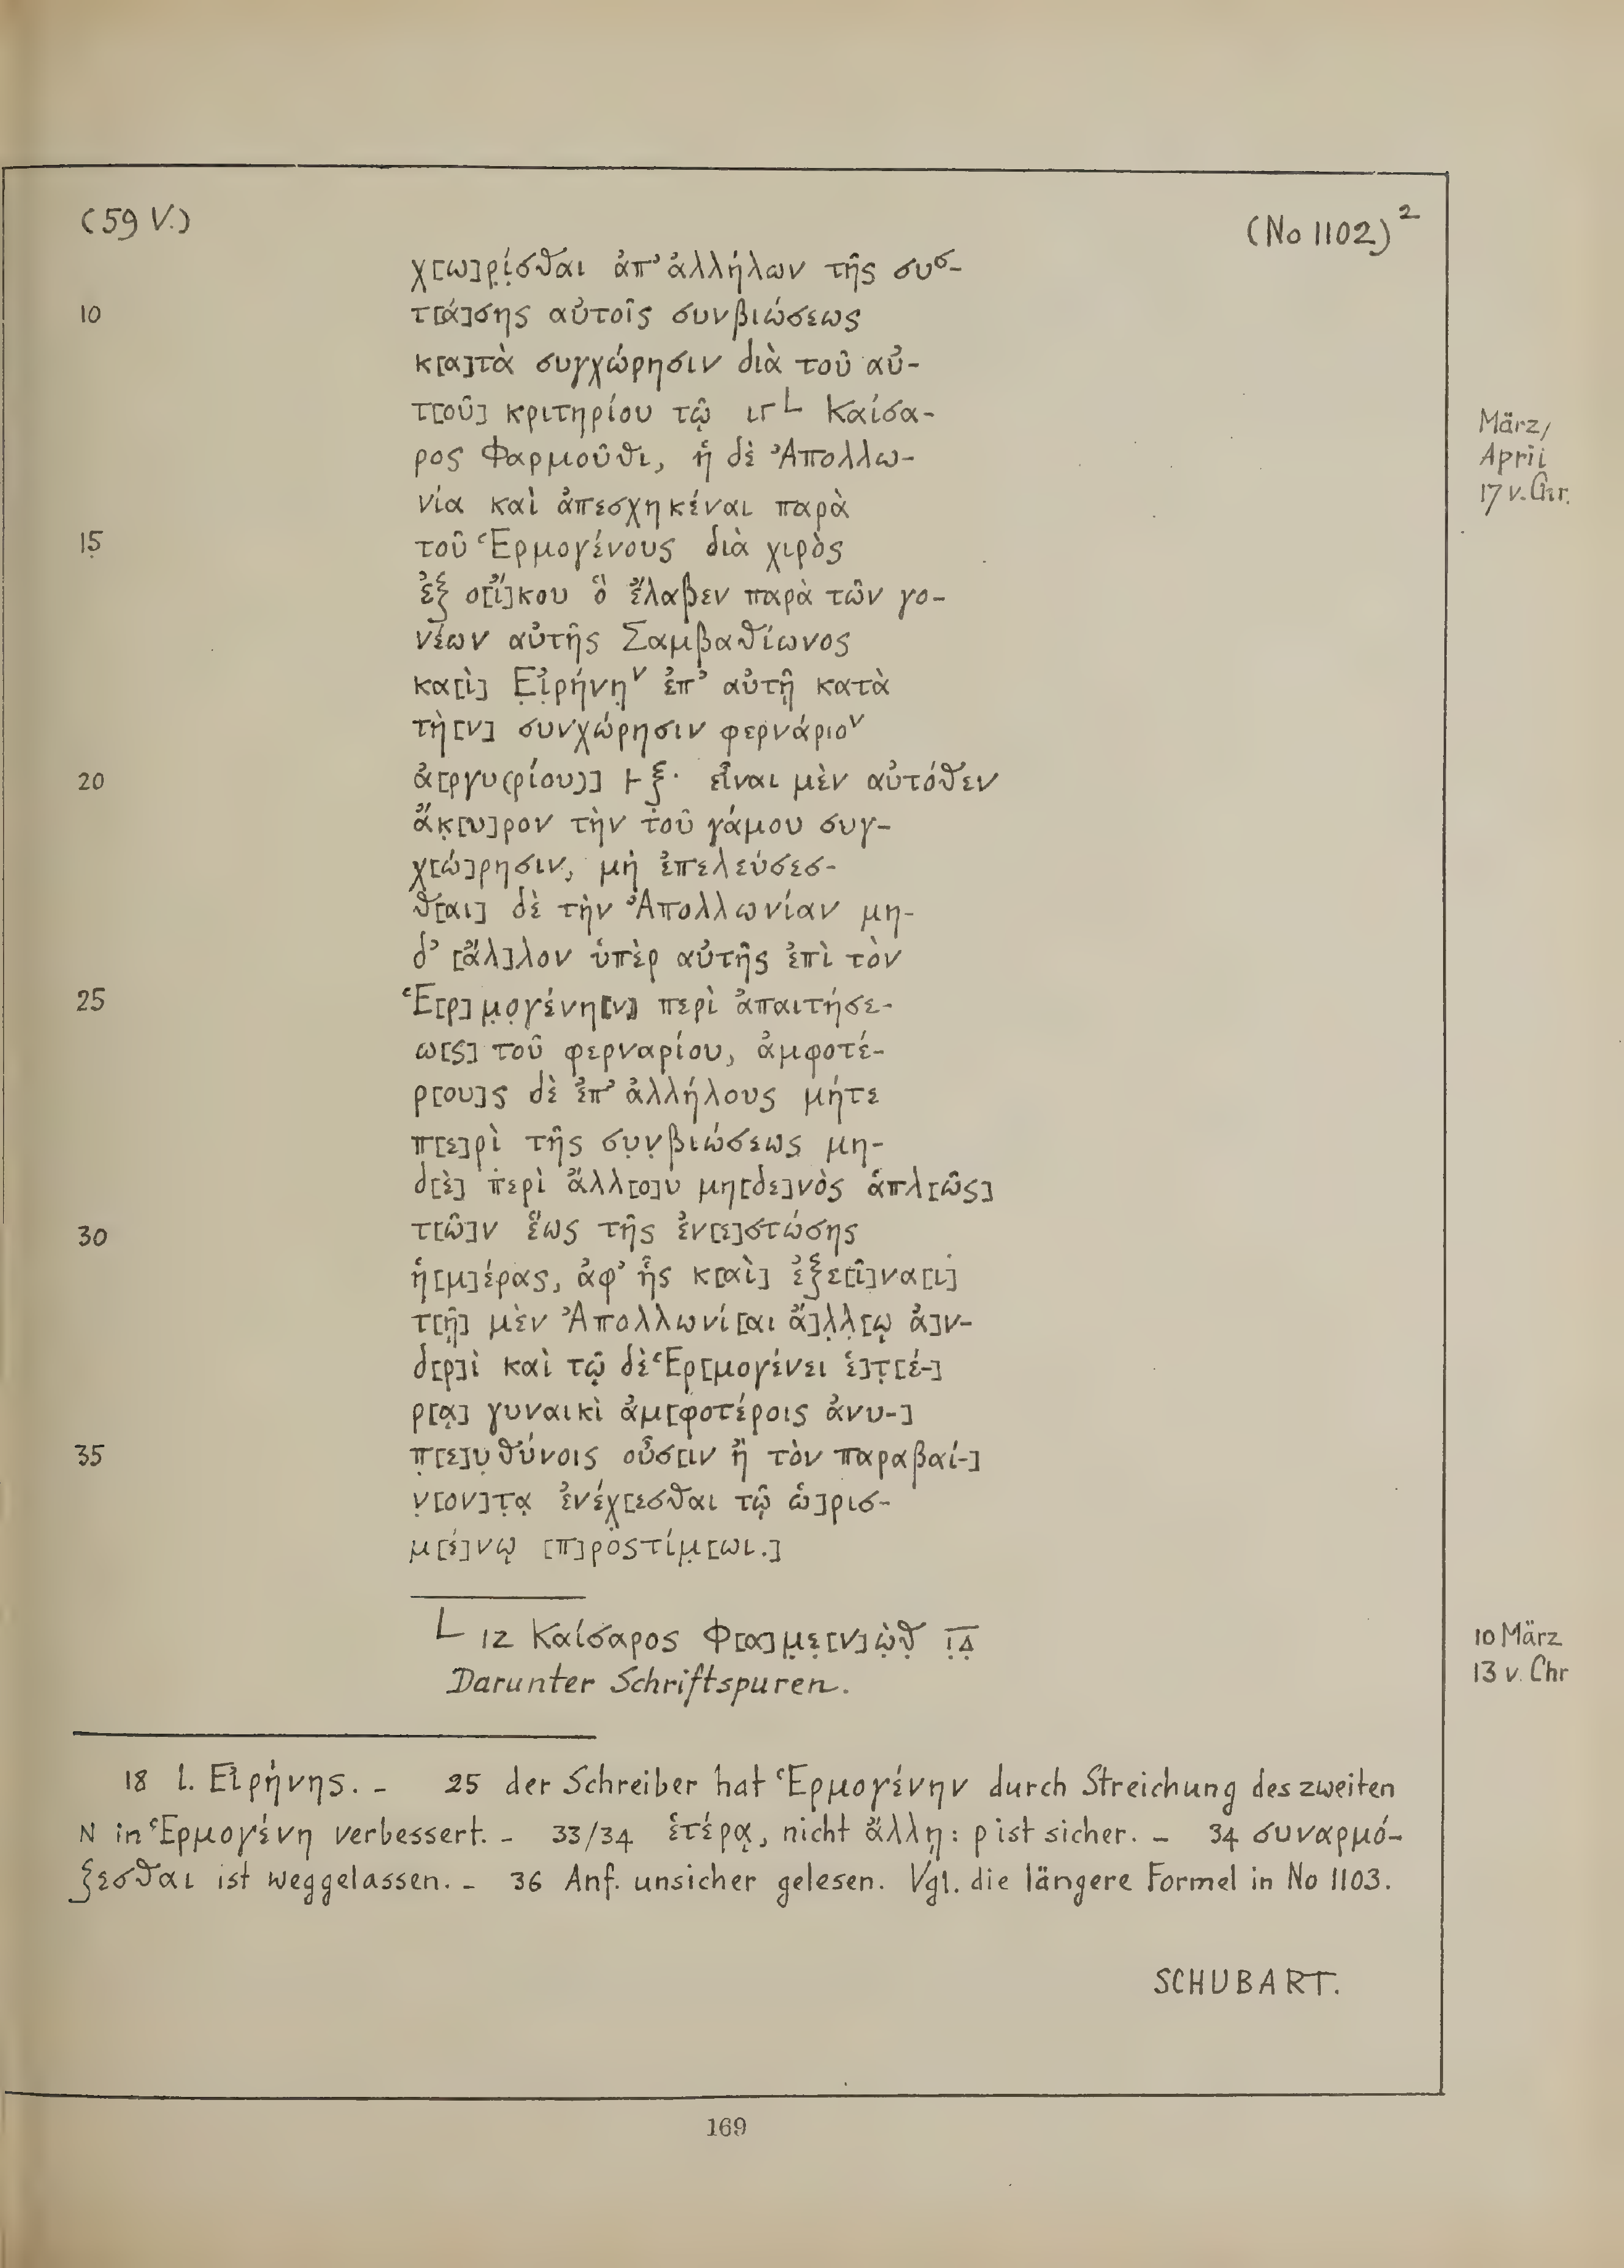 (59 V.)
(No 1102)²
χ[ω]ρ̣ί̣σθαι ἀπ᾽ ἀλλήλων τῆς συσ-
10 τ[ά]σης αὐτοῖς συνβιώσεως
κ[α]τὰ συγχώρησιν διὰ τοῦ αὐ-
τ[οῦ] κριτηρίου τῷ ιγ L Καίσα-
ρος Φαρμοῦθι, ἡ δὲ Ἀπολλω-
März/
April
17 v. Chr.
νία καὶ ἀπεσχηκέναι παρὰ
15 τοῦ Ἑρμογένους διὰ χιρὸς
ἐξ ο[ἴ]κου ὃ ἔλαβεν παρὰ τῶν γο-
νέων αὐτῆς Σαμβαθίωνος
κα[ὶ] Ε̣ἰ̣ρήνη̣ν ἐπ᾽ αὐτῇ κατὰ
τὴ[ν] συνχώρησιν φερνάριον
20 ἀ[ργυ(ρίου)] Ͱ ξ· εἶναι μὲν αὐτόθεν
ἄκ̣[υ]ρον τὴν τοῦ γάμου συγ-
χ[ώ]ρησιν, μὴ ἐπελεύσεσ-
θ[αι] δὲ τὴν Ἀπολλωνίαν μη-
δ᾽ [ἄλ]λον ὑπὲρ αὐτῆς ἐπὶ τὸν
25 Ἑ[ρ]μ̣ο̣γένη⟦ν⟧ περὶ ἀπαιτήσε-
ω[ς] τοῦ φερναρίου, ἀμφοτέ-
ρ[ου]ς δὲ ἐπ᾽ ἀλλήλους μήτε
π[ε]ρὶ τῆς συ̣ν̣βιώσεως μη-
δ[ὲ] περὶ ἄλλ[ο]υ μη[δε]νὸς ἁπλ[ῶς]
30 τ[ῶ]ν ἕως τῆς ἐν[ε]στώσης
ἡ[μ]έρας, ἀφ᾽ ἧς κ[αὶ] ἐξε[ῖ]να[ι]
τ[ῇ] μὲν Ἀπολλωνί[αι ἄ]λ̣λ̣[ῳ ἀ]ν-
δ[ρ]ὶ καὶ τῷ δὲ Ἑρ[μογένει ἑ]τ̣[έ-]
ρ[ᾳ] γυναικὶ ἀμ[φοτέροις ἀνυ-]
35 π̣[ε]υ̣θύνοις οὖσ[ιν ἢ τὸν παραβαί-]
ν̣[ον]τ̣α̣ ἐνέχ̣[εσθαι τῷ ὡ]ρισ-
μ[έ]νῳ [π]ροστίμ̣[ωι.]
L ιζ Καίσαρος Φ[α]μ̣ε̣[ν]ὼ̣θ̣ ι̣δ̣
10 März
13 v. Chr
Darunter Schriftspuren.
18 l. Εἰρήνης. - 25 der Schreiber hat Ἑρμογένην durch Streichung des zweiten
N in Ἑρμογένη verbessert. - 33/34 ἑτέρᾳ, nicht ἄλλῃ: ρ ist sicher. - 34 συναρμό-
ζεσθαι ist weggelassen. - 36 Anf. unsicher gelesen. Vgl. die längere Formel in No 1103.
SCHUBART.
169